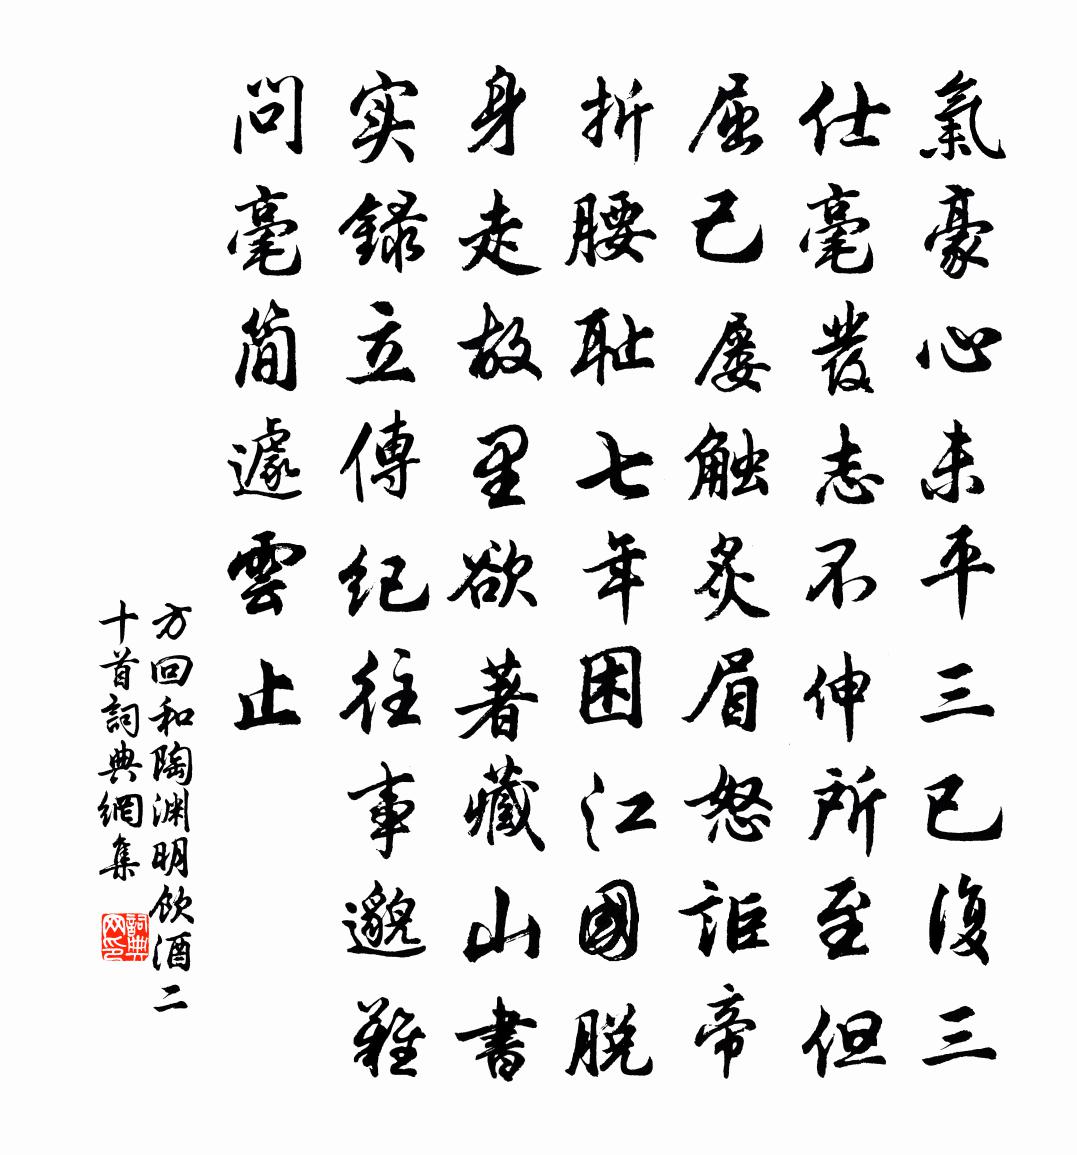 氣豪心未平三已復三
仕毫發志不伸所至但
屈己屡触炙眉怒詎帝
折腰耻七年困江國脱
身走故里欲著藏山書
实録立傳纪往事邈難
問毫簡遽雲止
方回和陶渊明飲酒二
十首詞典網集
詞典网印